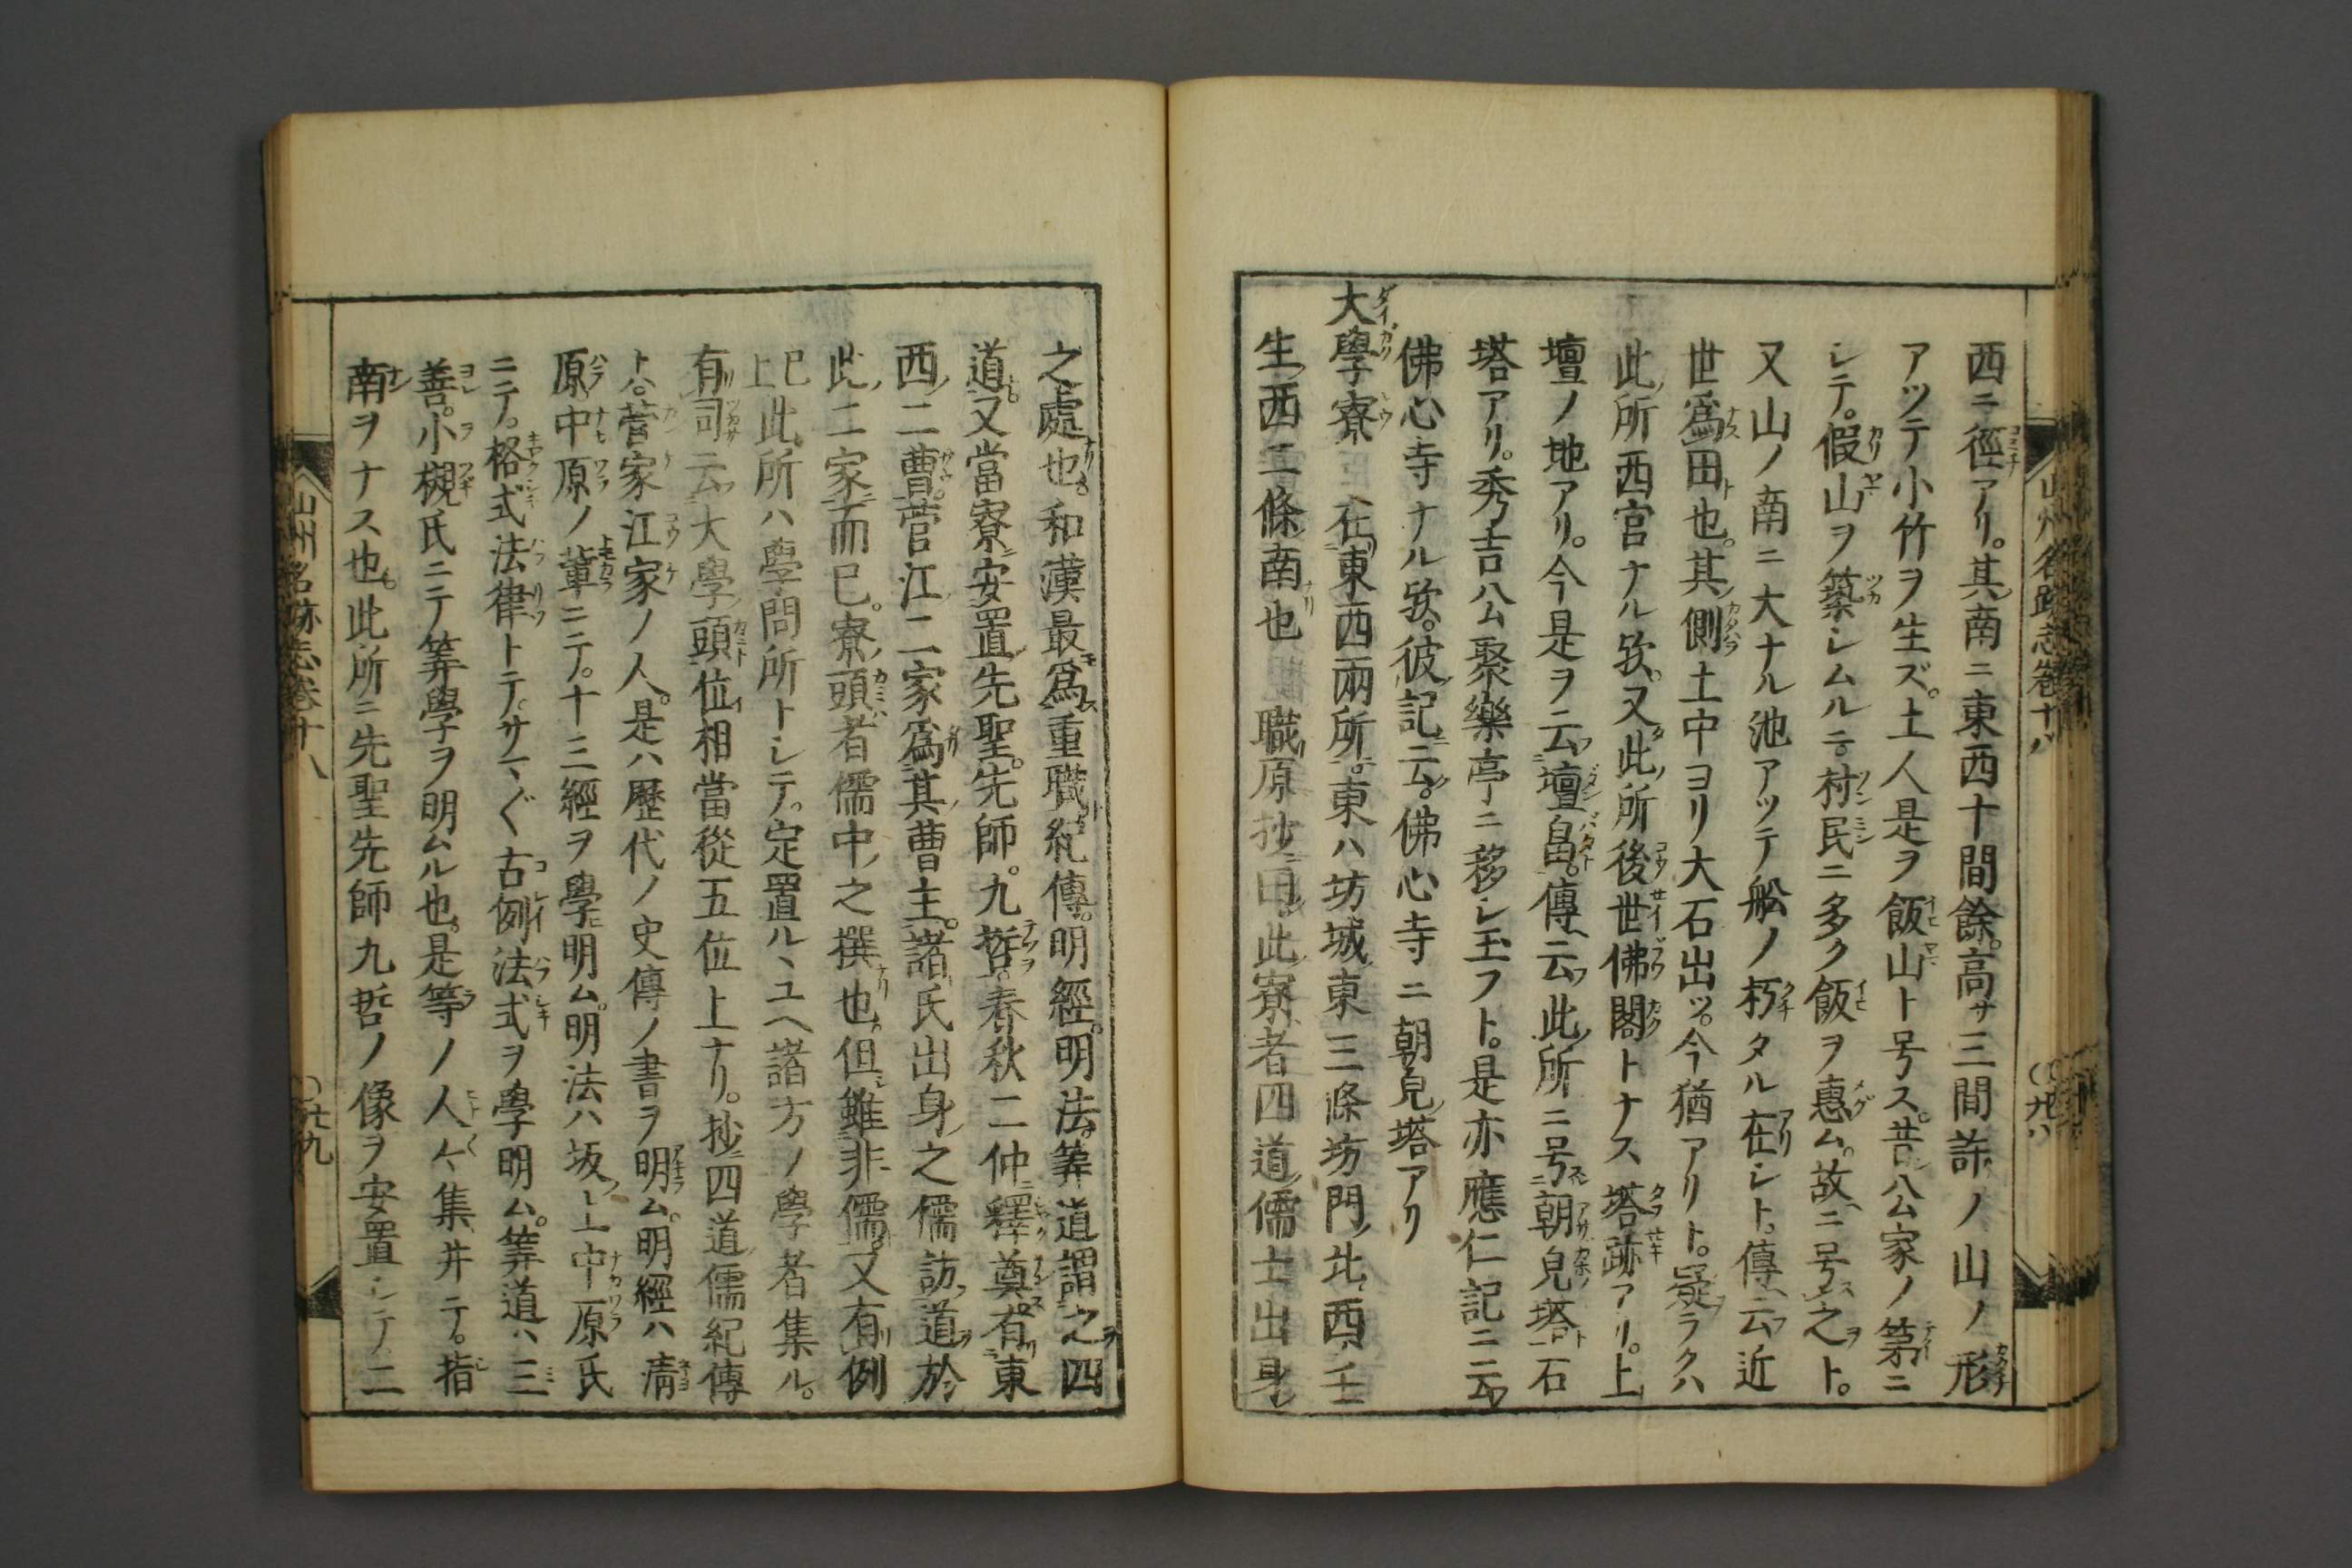 西ニ徑アリ。其南ニ東西十間餘。高サ三間許ノ山ノ形
アツテ小竹ヲ生ズ。土人是ヲ飯山ト号ス。昔シ公家ノ第ニ
シテ。假山ヲ築シムルニ。村民ニ多ク飯ヲ惠ム。故ニ号ス之ヲト。
又山ノ南ニ大ナル池アツテ船ノ朽タル在シト。傳云フ近
世爲田ト也。其側土中ヨリ大石出ツ。今猶アリト。疑ラクハ
此ノ所西宮ナル歟。又此ノ所後世佛閣トナス塔跡アリ。上ニ
壇ノ地アリ。今是ヲ云フ壇畠ト。傳云フ此ノ所ニ号朝皃塔ト石
塔アリ。秀吉公聚樂亭ニ移シ玉フト。是亦應仁記ニ云フ
佛心寺ナル歟。彼記ニ云ク。佛心寺ニ朝皃塔アリ
大學寮 在東西兩所ニ。東ハ坊城東三條坊門ノ北。西ハ壬
生ノ西二條ノ南也 職原抄ニ曰。此寮者四道ノ儒士出身
山州名跡志巻十八
〇九八
之處也。和漢最爲重職ト。紀傳。明經。明法。筭道謂之四
道ト。又當寮ニ安置先聖。先師。九哲ヲ。春秋二仲釋奠ス。有東
西ノ二曹。菅江ノ二家爲其曹主。諸氏出身之儒訪道ヲ於
此ノ二家ニ而已。寮ノ頭者儒中ノ之撰也。但雖非儒ニ又有例
已上此所ハ學問所トシテ。定置ルヽユヘ諸方ノ學者集ル。
有司云フ大學ノ頭位相當從五位上ナリ。抄ニ四道ノ儒紀傳
トハ。菅家江家ノ人。是ハ歷代ノ史傳ノ書ヲ明ム。明經ハ清
原中原ノ輩ニテ。十三經ヲ學ヒ明ム。明法ハ坂ノ上中原氏
ニテ。格式法律トテ。サマ〱古例法式ヲ學明ム。筭道ハ三
善。小槻氏ニテ筭學ヲ明ムル也。是等ノ人〻集井テ。指
南ヲナス也。此所ニ先聖先師九哲ノ像ヲ安置シテ。二
山州名跡志巻十八
〇九九